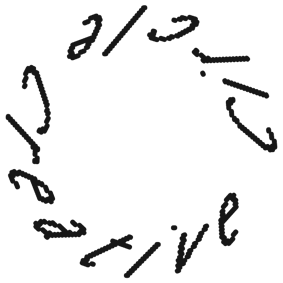 Circle Creative